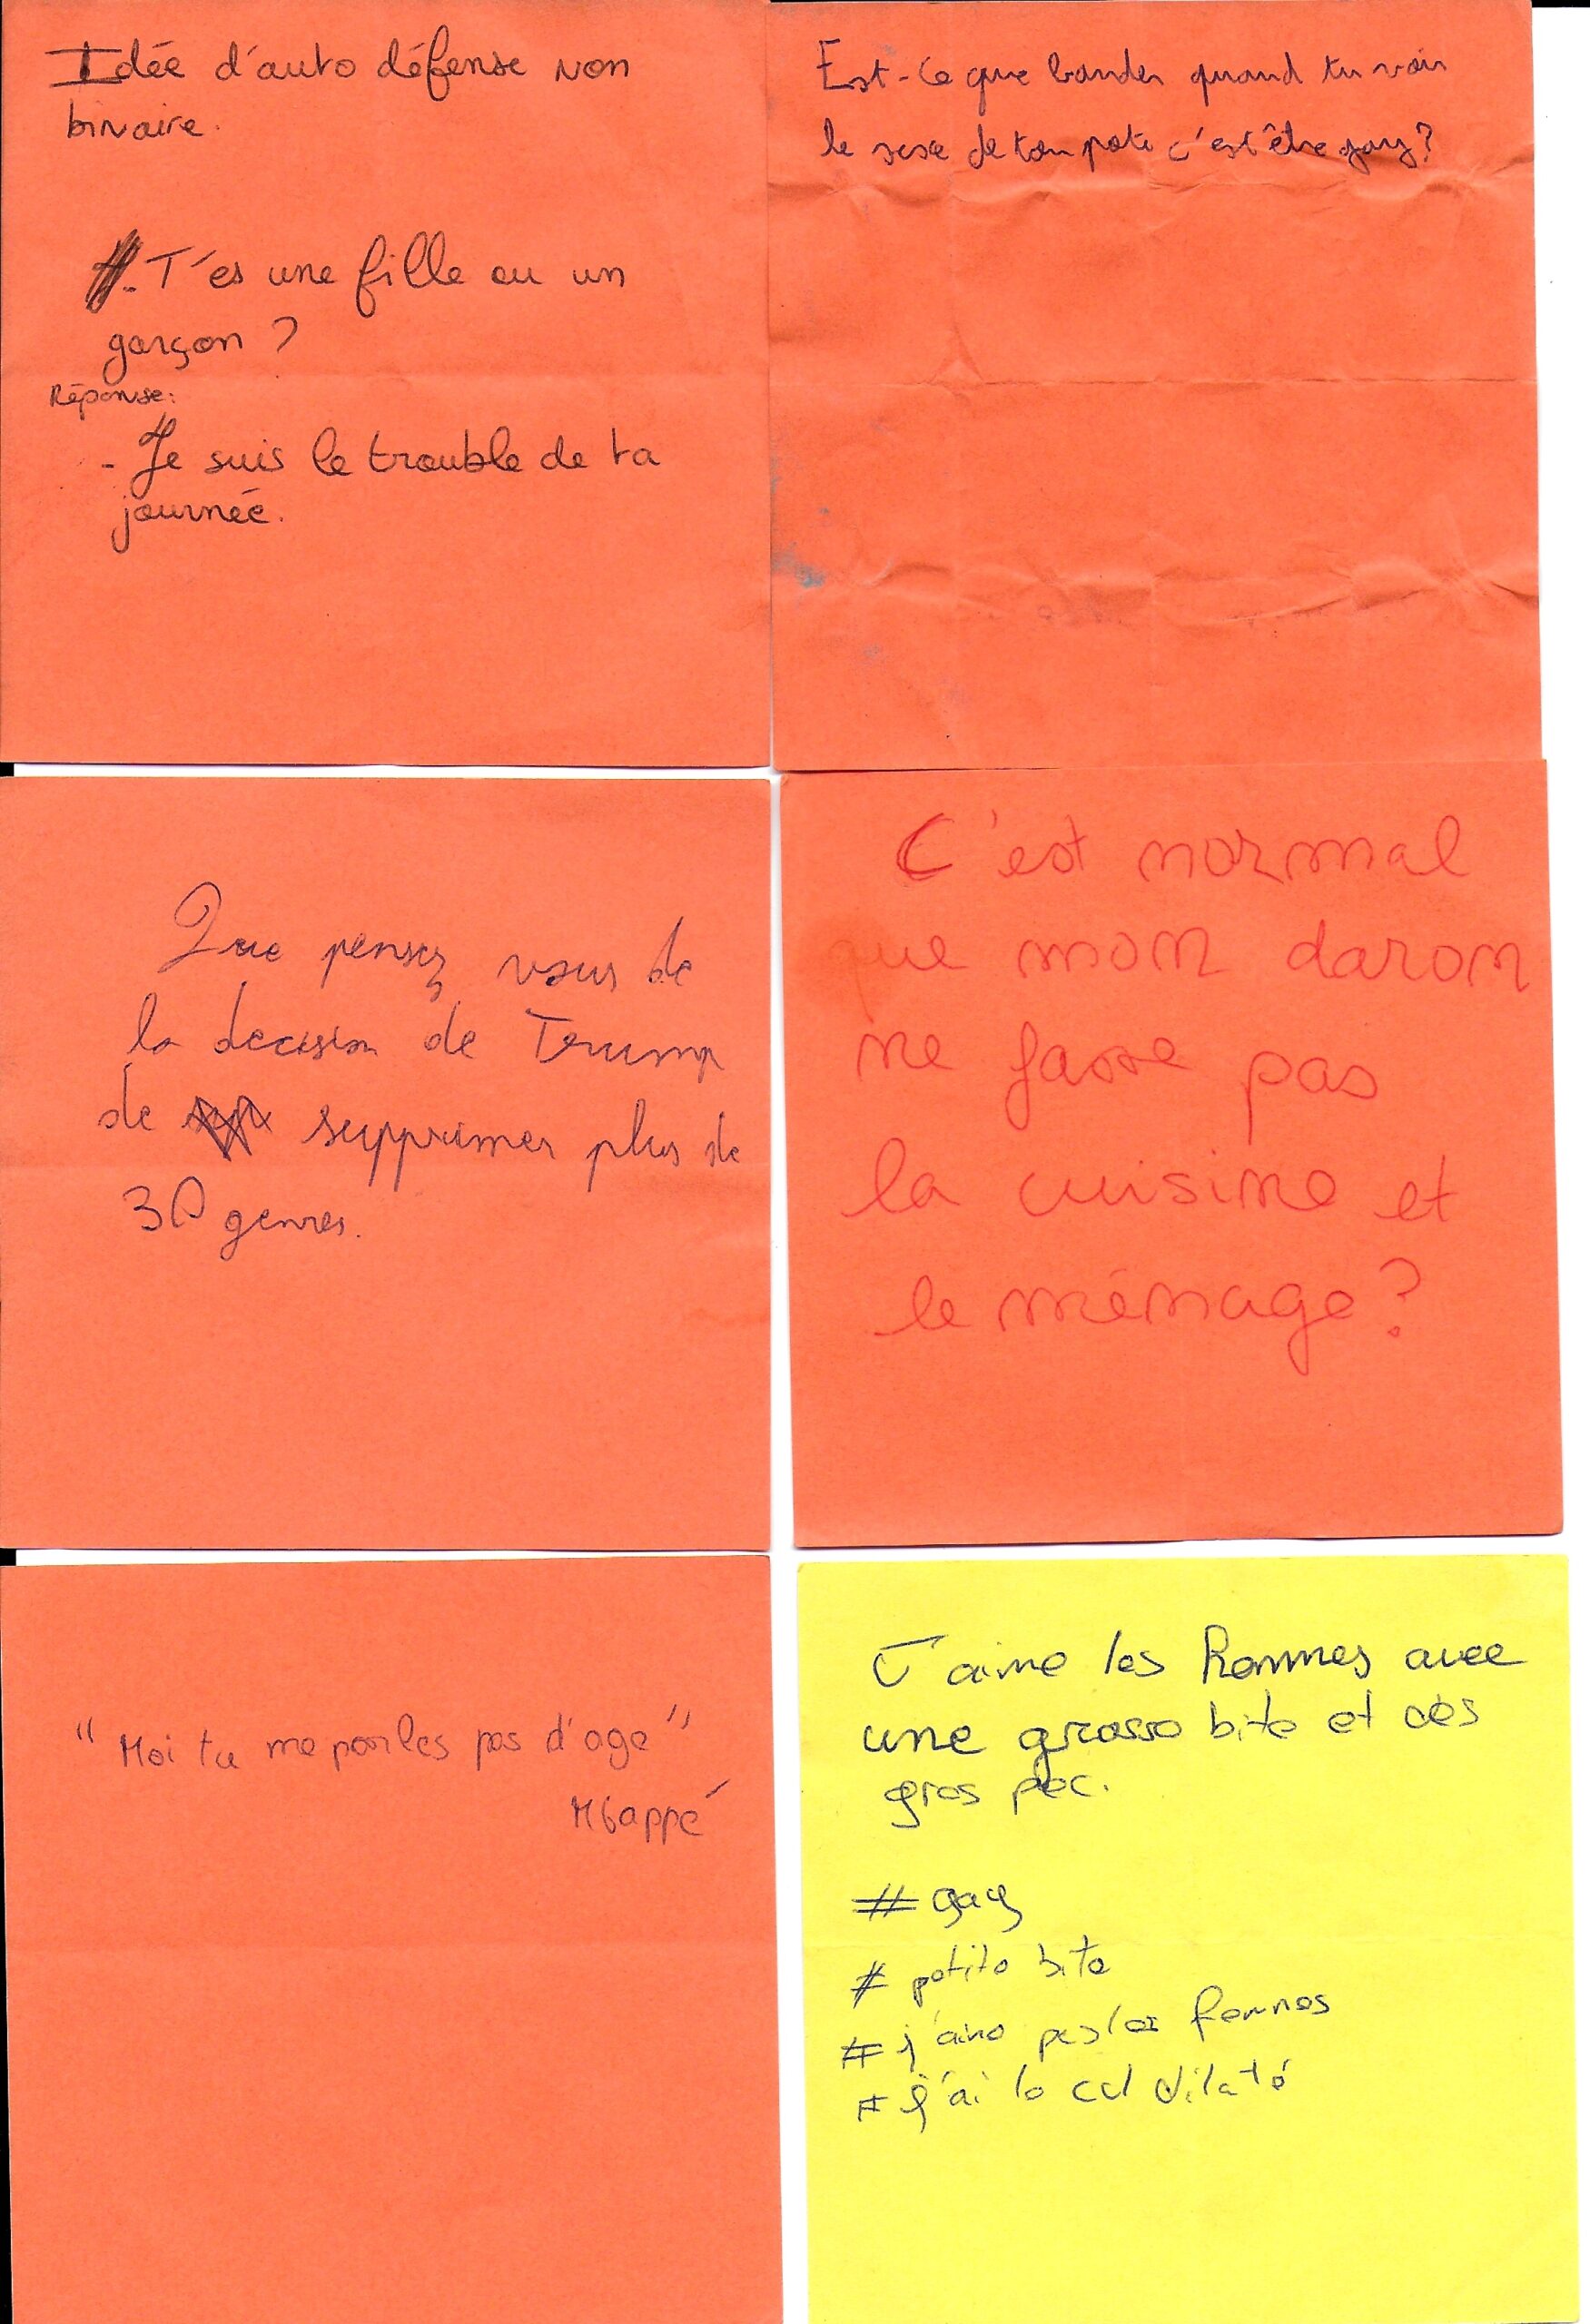 Idée d'auto défense non
binaire.
- T'es une fille ou un
garçon ?
Réponse:
- Je suis le trouble de ta
journée.
Est-ce que bander quand tu vois
le sexe de ton pote c'est être gay?
Que pensez vous de
la decision de Trump
de supprimer plus de
30 genres.
C'est normal
que mon daron
ne fasse pas
la cuisine et
le ménage?
"Moi tu me parles pas d'age"
Mbappé
J'aime les hommes avec
une grosse bite et des
gros pec.
# gay
# petite bite
# j'aime pas les femmes
# j'ai le cul dilaté